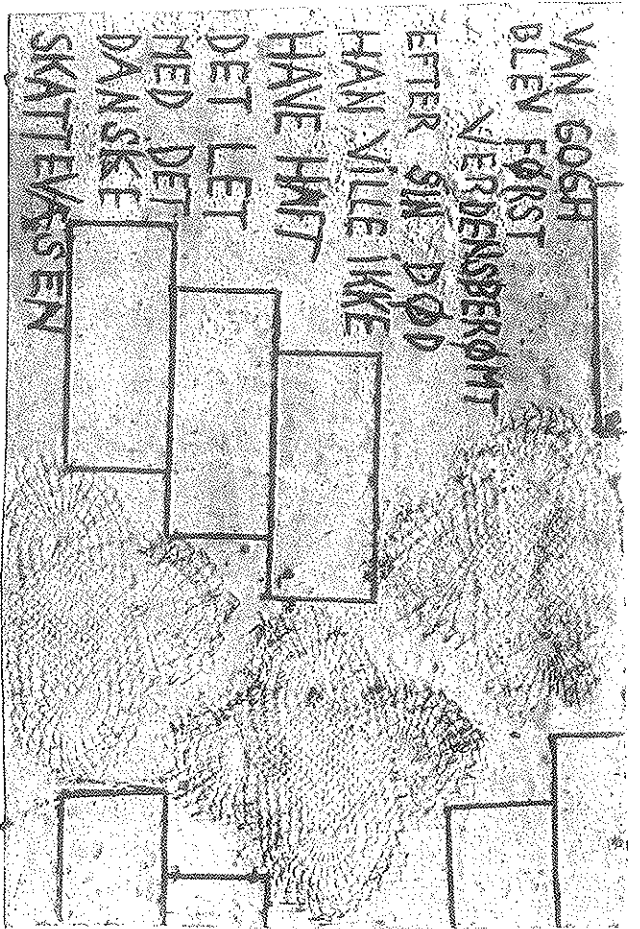 VAN GOGH
BLEV FØRST
VERDENSBERØMT
EFTER SIN DØD
HAN VILLE IKKE
HAVE HAFT
DET LET
MED DET
DANSKE
SKATTEVÆSEN